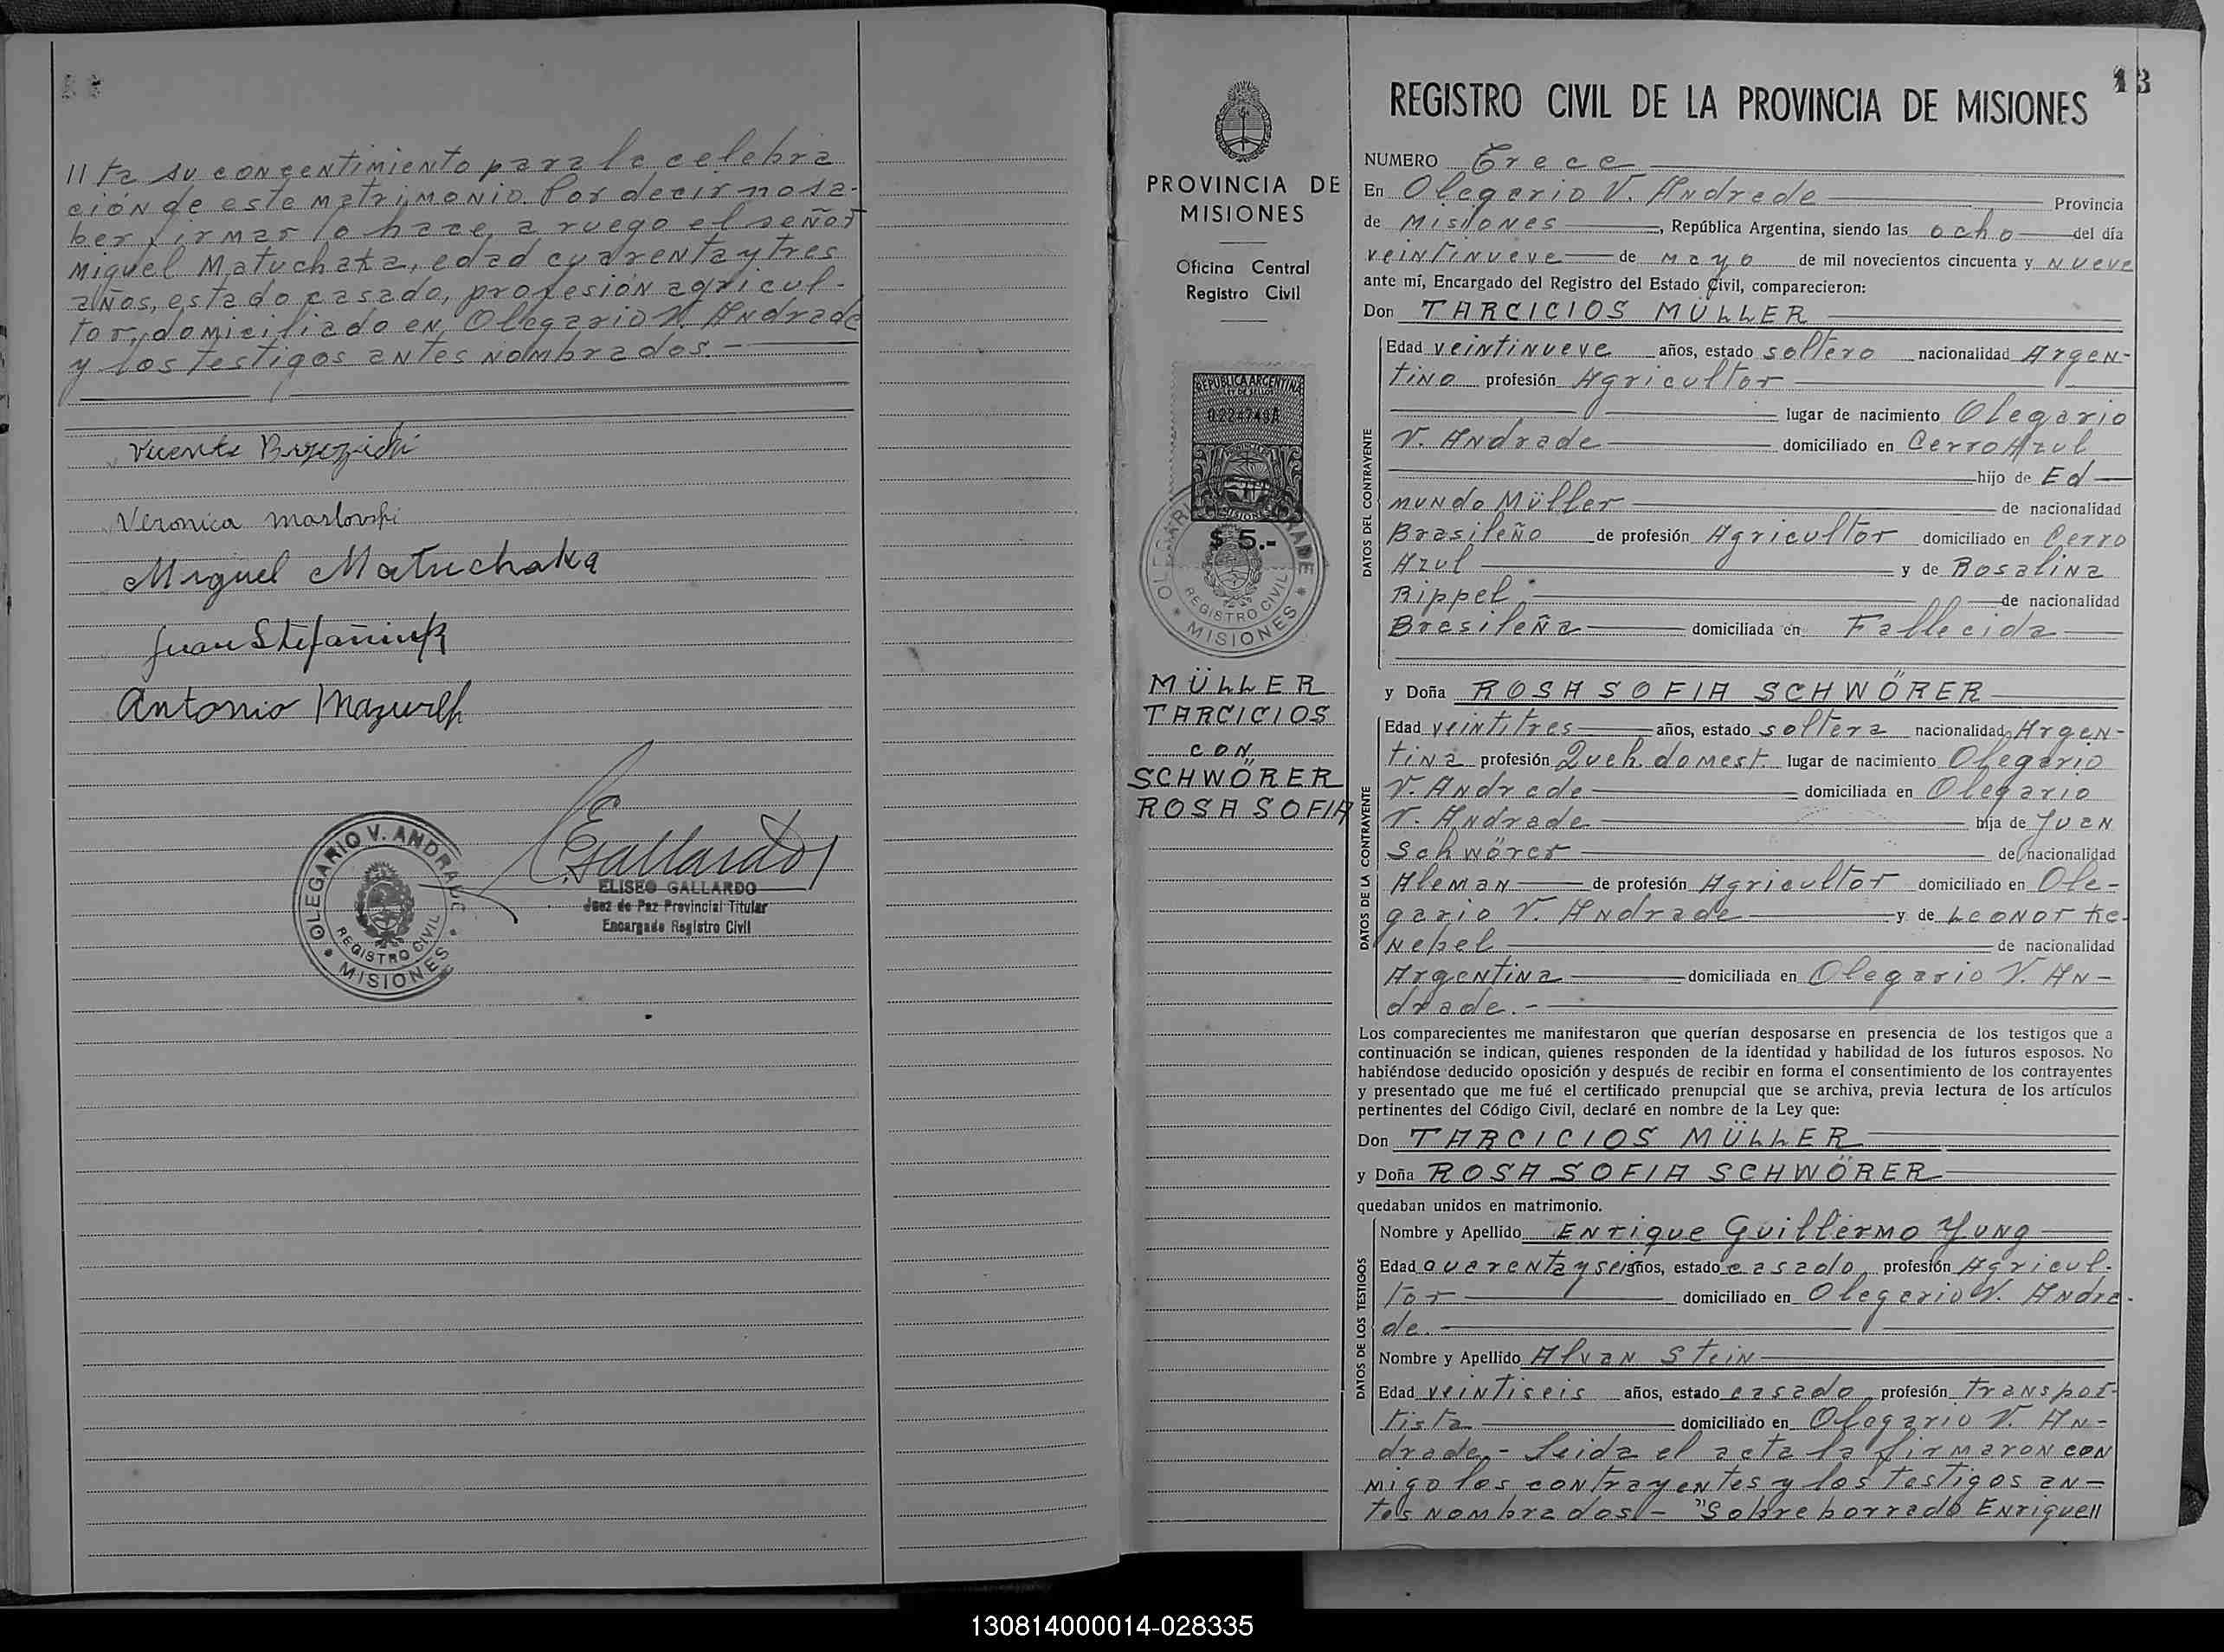 //ta su consentimiento para la celebra
ción de este matrimonio. Por decir no sa-
ber firmar lo hace a ruego el señor
Miguel Matuchaka, edad cuarenta y tres
años, estado casado, profesión agricul-
tor, domiciliado en Olegario V. Andrade
y los testigos antes nombrados.-
Veronica Marlovski
Miguel Matuchaka
Juan Stefañiuk
Antonio Mazurek
OLEGARIO V. ANDRADE
REGISTRO CIVIL
* MISIONES *
EGallardo
ELISEO GALLARDO
Juez de Paz Provincial Titular
Encargado Registro Civil
PROVINCIA DE
MISIONES
Oficina Central
Registro Civil
REPUBLICA ARGENTINA
MISIONES
$ 5.-
REGISTRO CIVIL
* MISIONES *
MÜLLER
TARCICIOS
CON
SCHWÖRER
ROSA SOFIA
13
REGISTRO CIVIL DE LA PROVINCIA DE MISIONES
NUMERO Trece
En Olegario V. Andrade Provincia
de Misiones, República Argentina, siendo las ocho del día
veintinueve de mayo de mil novecientos cincuenta y nueve
ante mí, Encargado del Registro del Estado Civil, comparecieron:
Don TARCICIOS MÜLLER
DATOS DEL CONTRAYENTE
Edad veintinueve años, estado soltero nacionalidad Argen-
tino profesión Agricultor
lugar de nacimiento Olegario
V. Andrade domiciliado en Cerro Azul
hijo de Ed
mundo Müller de nacionalidad
Brasileño de profesión Agricultor domiciliado en Cerro
Azul y de Rosalina
Rippel de nacionalidad
Brasileña domiciliada en Fallecida
y Doña ROSA SOFIA SCHWÖRER
DATOS DE LA CONTRAYENTE
Edad veintitres años, estado soltera nacionalidad Argen-
tina profesión Queh. domest. lugar de nacimiento Olegario
V. Andrade domiciliada en Olegario
V. Andrade hija de Juan
Schwörer de nacionalidad
Aleman de profesión Agricultor domiciliado en Ole-
gario V. Andrade y de Leonor Ke-
nebel de nacionalidad
Argentina domiciliada en Olegario V. An-
drade.-
Los comparecientes me manifestaron que querían desposarse en presencia de los testigos que a
continuación se indican, quienes responden de la identidad y habilidad de los futuros esposos. No
habiéndose deducido oposición y después de recibir en forma el consentimiento de los contrayentes
y presentado que me fué el certificado prenupcial que se archiva, previa lectura de los artículos
pertinentes del Código Civil, declaré en nombre de la Ley que:
Don TARCICIOS MÜLLER
y Doña ROSA SOFIA SCHWÖRER
quedaban unidos en matrimonio.
DATOS DE LOS TESTIGOS
Nombre y Apellido Enrique Guillermo Yung
Edad cuarenta y seis años, estado casado profesión Agricul-
tor domiciliado en Olegario V. Andra-
de.
Nombre y Apellido Alvan Stein
Edad veintiseis años, estado casado profesión transpor-
tista domiciliado en Olegario V. An-
drade.- Leida el acta la firmaron con
migo los contrayentes y los testigos an-
tes nombrados.- "Sobre borrado Enrique//
130814000014-028335